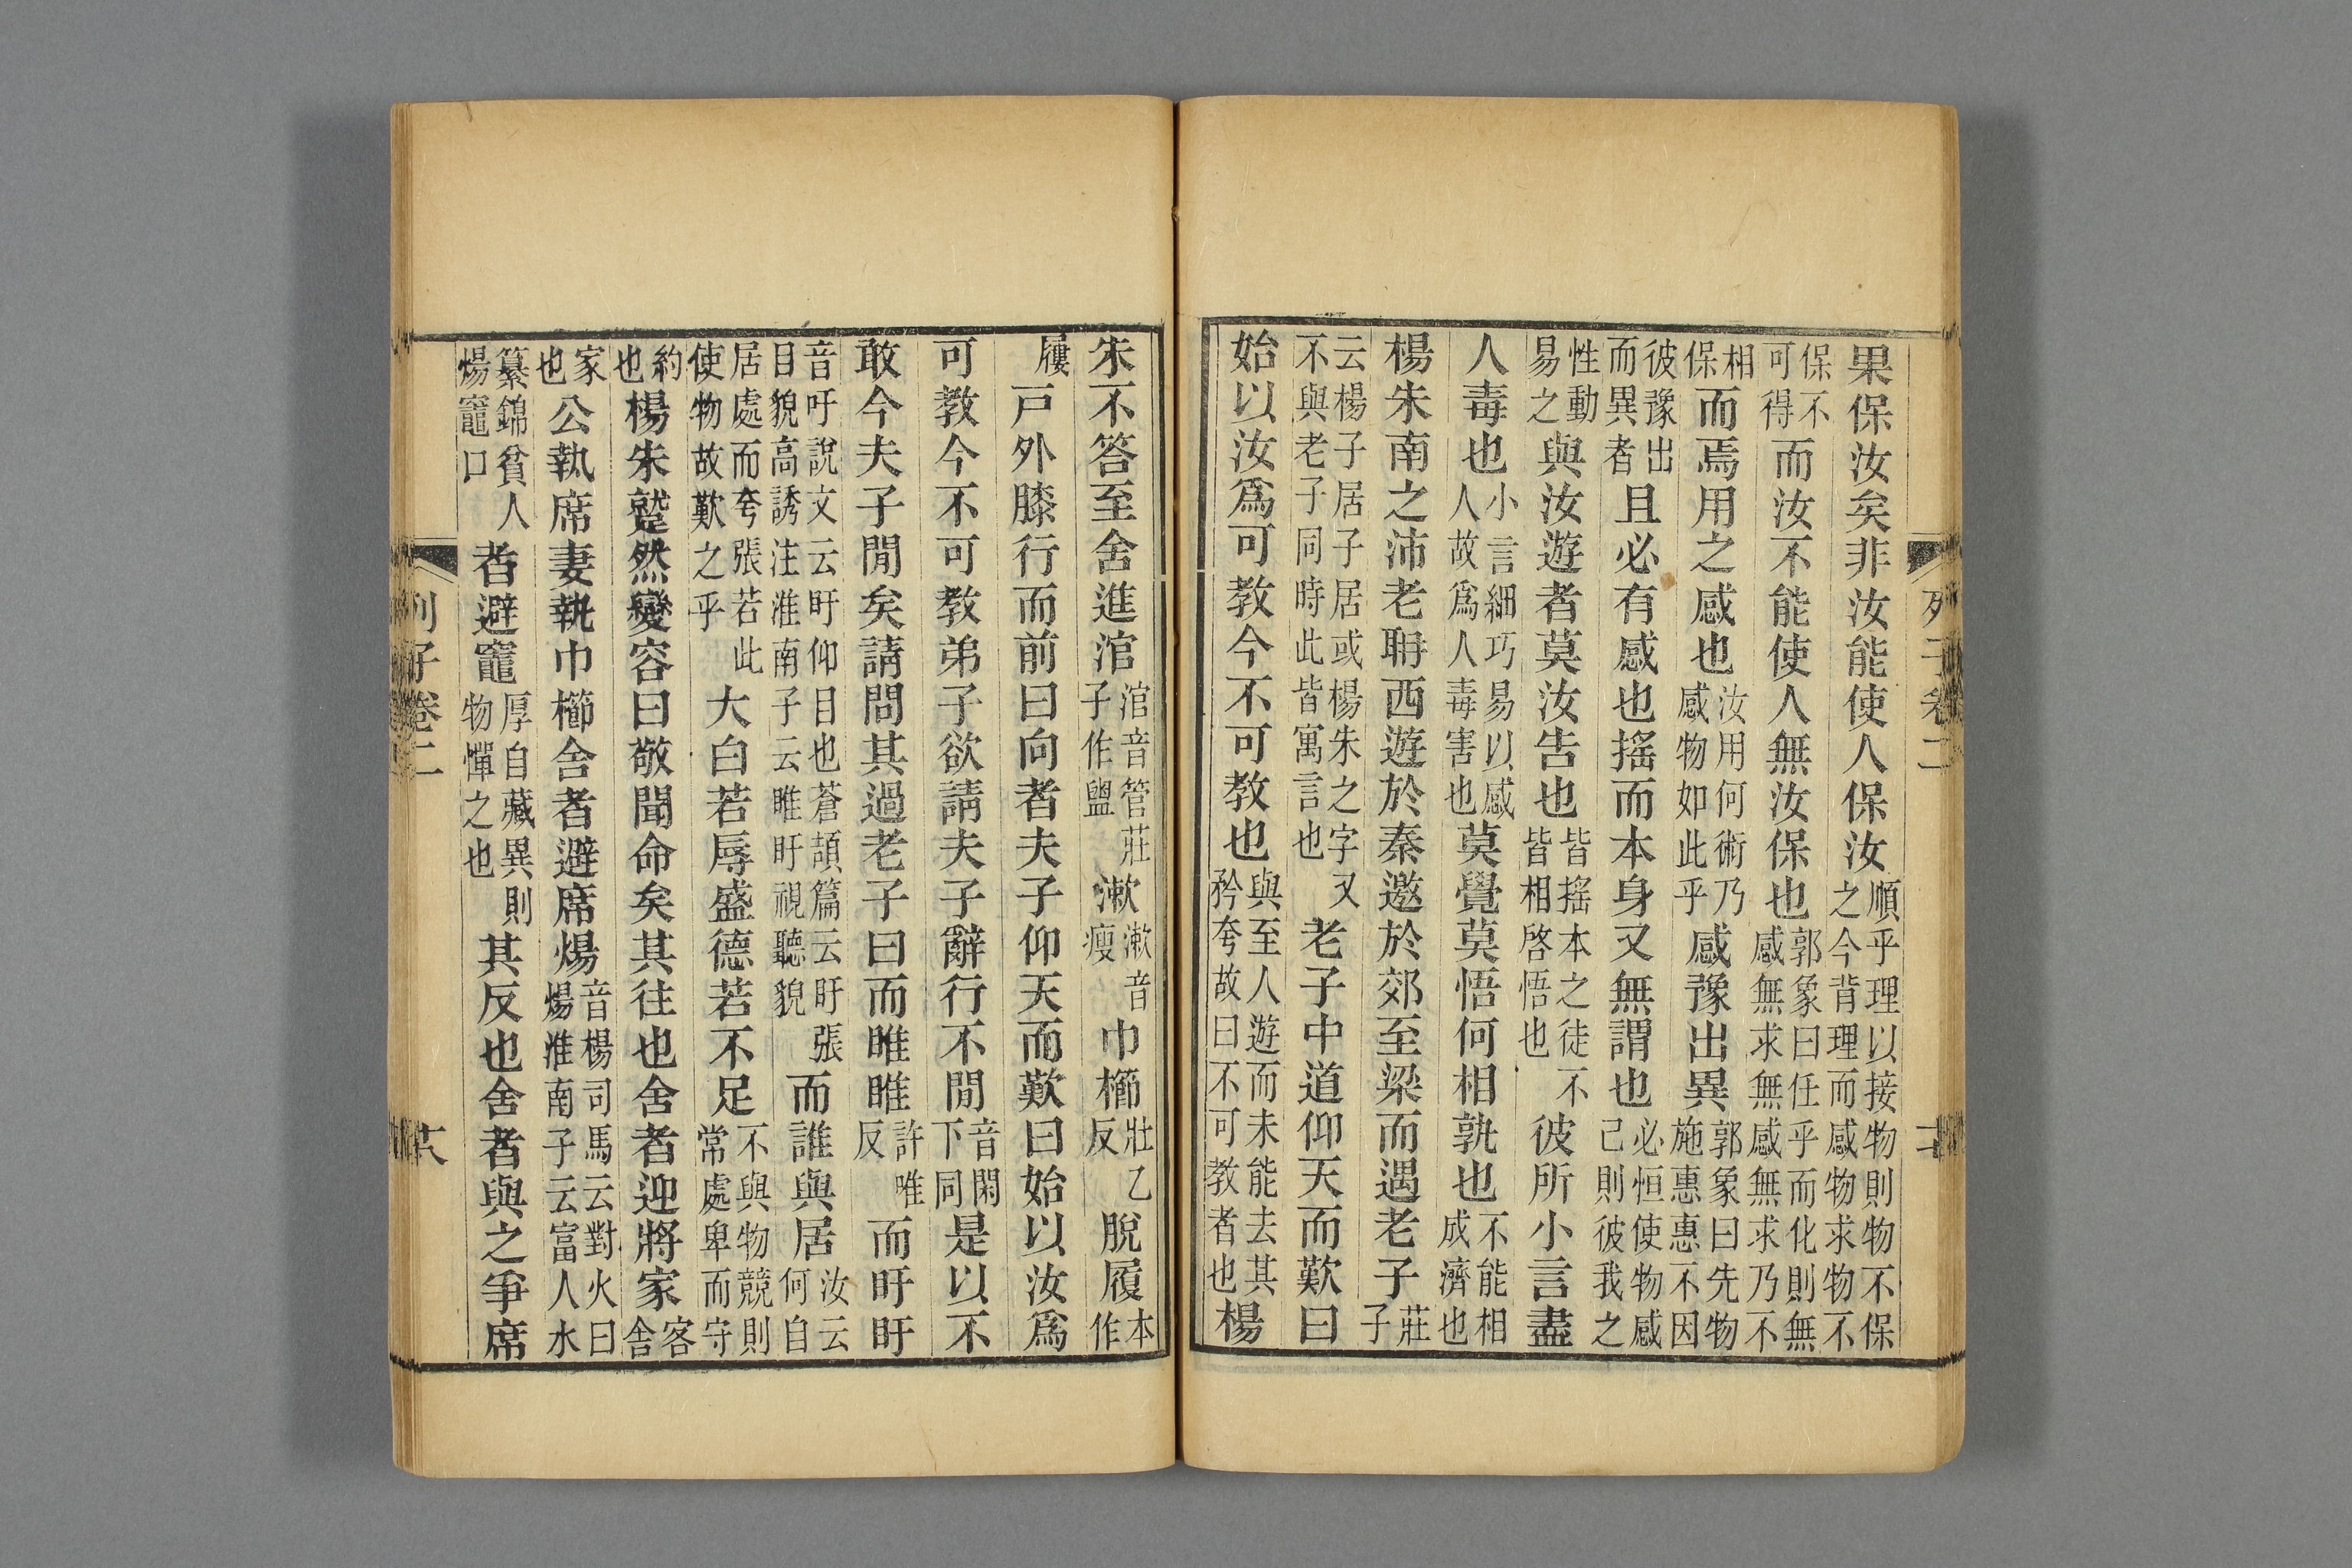 果保汝矣非汝能使人保汝順乎理以接物則物不保之今背理而感物求物不
保不可得而汝不能使人無汝保也郭象曰任乎而化則無感無求無感無求乃不
相保而焉用之感也汝用何術乃感物如此乎感豫出異郭象曰先物施惠惠不因
彼豫出而異者且必有感也搖而本身又無謂也必恒使物感己則彼我之
性動易之與汝遊者莫汝告也皆搖本之徒不皆相啓悟也彼所小言盡
人毒也小言細巧易以感人故爲人毒害也莫覺莫悟何相孰也不能相成濟也
楊朱南之沛老聃西遊於秦邀於郊至梁而遇老子莊子
云楊子居子居或楊朱之字又不與老子同時此皆寓言也老子中道仰天而歎曰
始以汝爲可教今不可教也與至人遊而未能去其矜夸故曰不可教者也楊
列子卷二
朱不答至舍進涫涫音管莊子作盥漱漱音瘦巾櫛壯乙反脫履本作
屨戸外膝行而前曰向者夫子仰天而歎曰始以汝爲
可教今不可教弟子欲請夫子辭行不閒音閑下同是以不
敢今夫子閒矣請問其過老子曰而睢睢許唯反而盱盱
音吁說文云盱仰目也蒼頡篇云盱張目貌高誘注淮南子云睢盱視聽貌而誰與居汝云何自
居處而夸張若此使物故歎之乎大白若辱盛德若不足不與物競則常處卑而守
約也楊朱蹵然變容曰敬聞命矣其往也舍者迎將家客舍
家也公執席妻執巾櫛舍者避席煬音楊司馬云對火曰煬淮南子云富人水
纂錦貧人煬竈口者避竈厚自藏異則物憚之也其反也舍者與之爭席
列子卷二
十八